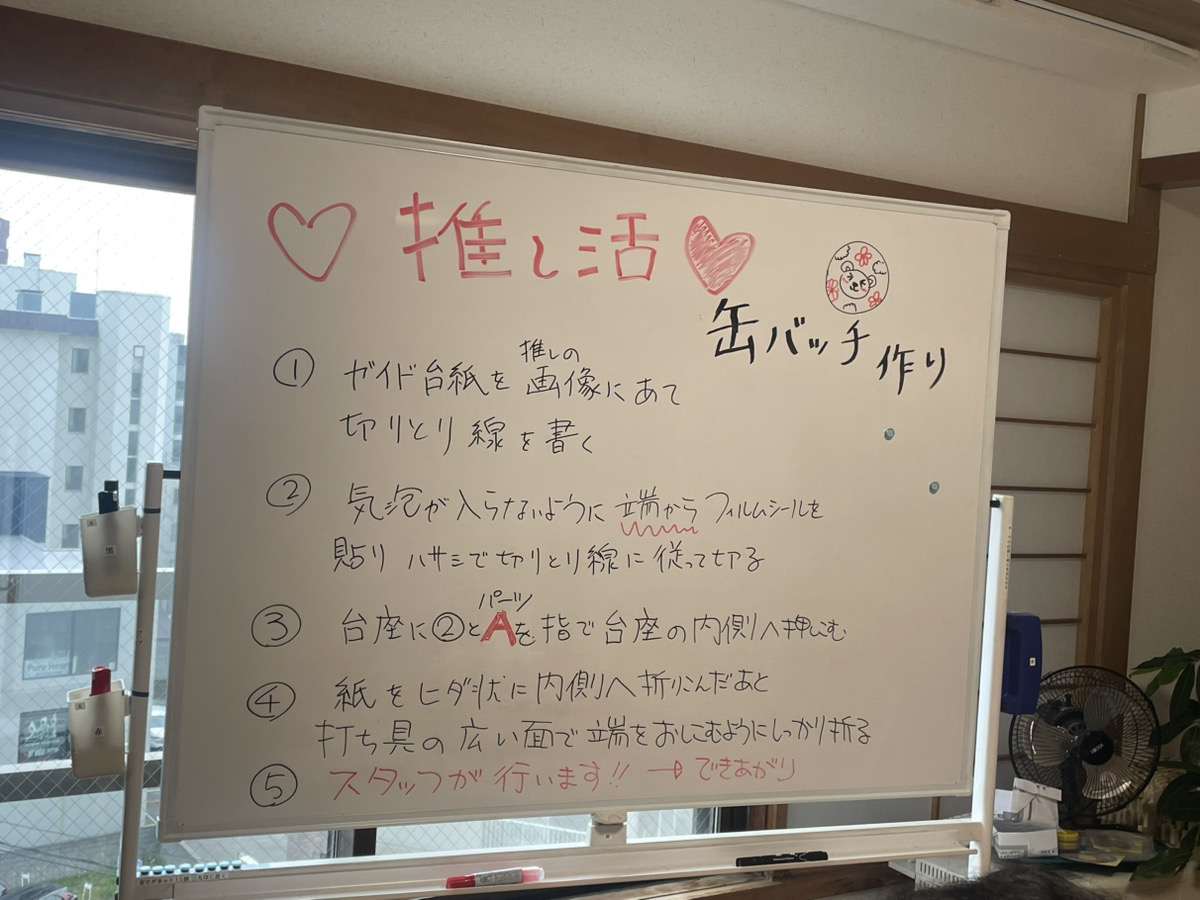 ♡ 推し活 ♡
缶バッチ作り
① ガイド台紙を推しの画像にあて
切りとり線を書く
② 気泡が入らないように端からフィルムシールを
貼り ハサミで切りとり線に従って切る
③ 台座に②とAパーツを指で台座の内側へ押しこむ
④ 紙をヒダ状に内側へ折りこんだあと
打ち具の広い面で端をおしこむようにしっかり折る
⑤ スタッフが行います!! → できあがり
黒
赤